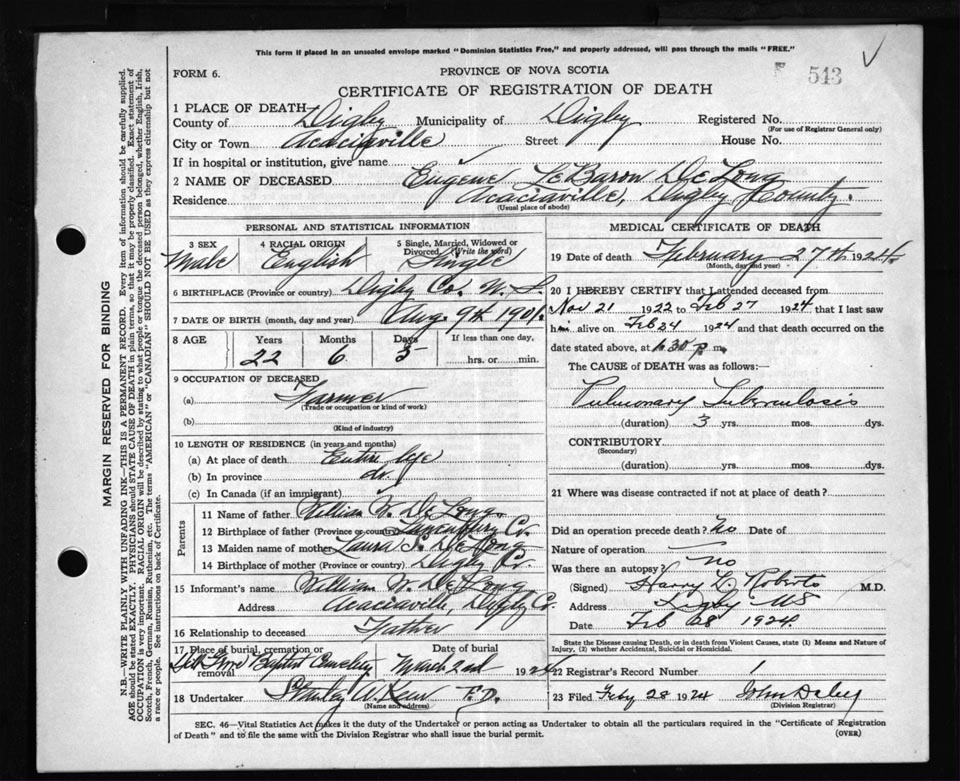 This form if placed in an unsealed envelope marked "Dominion Statistics Free," and properly addressed, will pass through the mails "FREE."
FORM 6.
PROVINCE OF NOVA SCOTIA
543
CERTIFICATE OF REGISTRATION OF DEATH
1 PLACE OF DEATH
County of Digby Municipality of Digby Registered No.
(For use of Registrar General only)
City or Town Acaciaville Street House No.
If in hospital or institution, give name
2 NAME OF DECEASED Eugene LeBaron DeLong
Residence Acaciaville, Digby County.
(Usual place of abode)
PERSONAL AND STATISTICAL INFORMATION
3 SEX Male
4 RACIAL ORIGIN English
5 Single, Married, Widowed or Divorced (Write the word) Single
6 BIRTHPLACE (Province or country) Digby Co. N. S.
7 DATE OF BIRTH (month, day and year) Aug. 9th 1901
8 AGE Years Months Days If less than one day,
22 6 5 hrs. or min.
9 OCCUPATION OF DECEASED
(a) Farmer
(Trade or occupation or kind of work)
(b)
(Kind of industry)
10 LENGTH OF RESIDENCE (in years and months)
(a) At place of death Entire life
(b) In province do.
(c) In Canada (if an immigrant)
Parents
11 Name of father William W. DeLong
12 Birthplace of father (Province or country) Lunenburg Co.
13 Maiden name of mother Laura DeLong
14 Birthplace of mother (Province or country) Digby Co.
15 Informant's name William W. DeLong
Address Acaciaville, Digby Co.
16 Relationship to deceased Father
17 Place of burial, cremation or removal Baptist Cemetery
Date of burial March 2nd 1924
18 Undertaker F.D.
(Name and address)
MEDICAL CERTIFICATE OF DEATH
19 Date of death February 27th 1924
(Month, day and year)
20 I HEREBY CERTIFY that I attended deceased from
Nov 21 1922 to Feb 27 1924 that I last saw
him alive on Feb 24 1924 and that death occurred on
date stated above, at 6 30 p m.
The CAUSE of DEATH was as follows:—
Pulmonary Tuberculosis
(duration) 3 yrs. mos. dys.
CONTRIBUTORY
(Secondary)
(duration) yrs. mos. dys.
21 Where was disease contracted if not at place of death?
Did an operation precede death? No Date of
Nature of operation
Was there an autopsy? no
(Signed) Harry L. Roberts M.D.
Address Digby NS
Date Feb 28 1924
State the Disease causing Death, or in death from Violent Causes, state (1) Means and Nature of Injury, (2) whether Accidental, Suicidal or Homicidal.
22 Registrar's Record Number 1
23 Filed Feby 28 1924 John Daley
(Division Registrar)
SEC. 46—Vital Statistics Act makes it the duty of the Undertaker or person acting as Undertaker to obtain all the particulars required in the "Certificate of Registration
of Death" and to file the same with the Division Registrar who shall issue the burial permit.
(OVER)
MARGIN RESERVED FOR BINDING
N.B.—WRITE PLAINLY WITH UNFADING INK—THIS IS A PERMANENT RECORD. Every item of information should be carefully supplied.
AGE should be stated EXACTLY. PHYSICIANS should STATE CAUSE OF DEATH in plain terms, so that it may be properly classified. Exact statement of
OCCUPATION is very important. RACIAL ORIGIN will be described by stating to what people or tongue the deceased person belonged, whether English, Irish,
Scotch, French, German, Russian, Ruthenian, etc. The terms "AMERICAN" or "CANADIAN" SHOULD NOT BE USED as they express citizenship but not
a race or people. See instructions on back of Certificate.